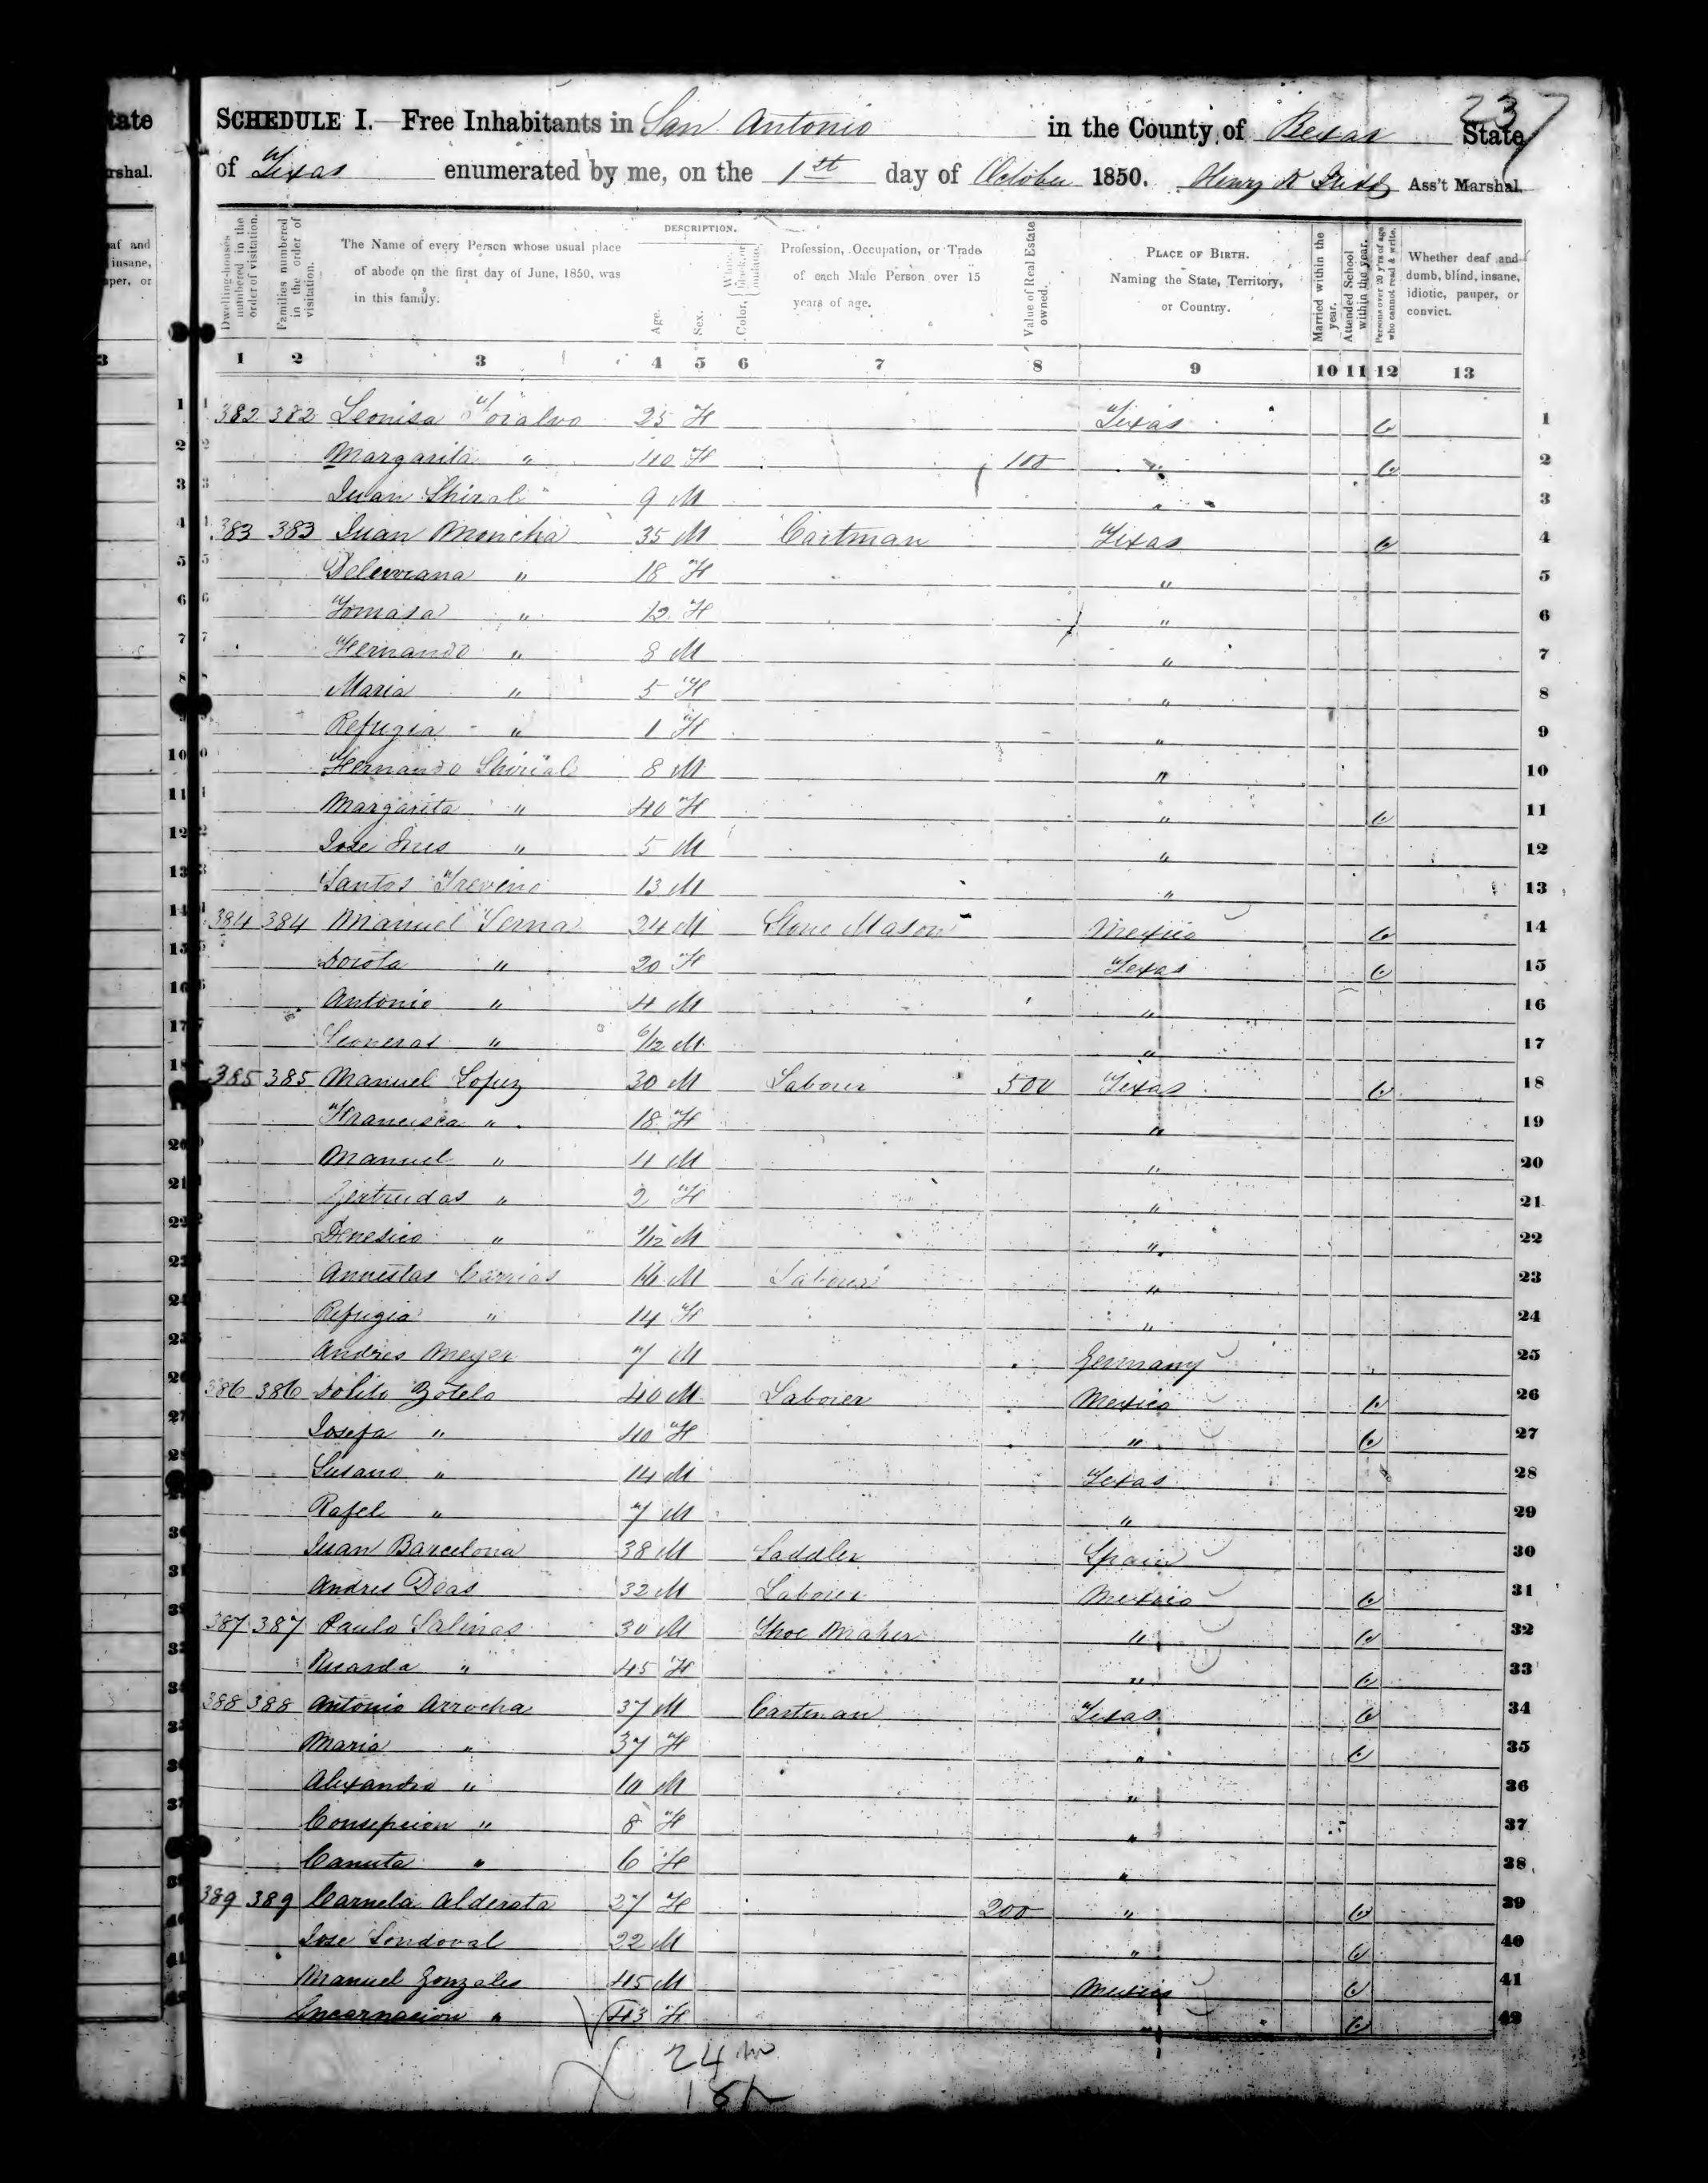 237
SCHEDULE I.—Free Inhabitants in San Antonio in the County of Bexar State
of Texas enumerated by me, on the 1st day of October 1850. Henry Ass't Marshal.
Dwelling-houses numbered in the order of visitation.
Families numbered in the order of visitation.
The Name of every Person whose usual place of abode on the first day of June, 1850, was in this family.
DESCRIPTION.
Age.
Sex.
Color, White, black, or mulatto.
Profession, Occupation, or Trade of each Male Person over 15 years of age.
Value of Real Estate owned.
PLACE OF BIRTH. Naming the State, Territory, or Country.
Married within the year.
Attended School within the year.
Persons over 20 y'rs of age who cannot read & write.
Whether deaf and dumb, blind, insane, idiotic, pauper, or convict.
1 2 3 4 5 6 7 8 9 10 11 12 13
1 382 382 Leonisa 25 F Texas 1
2 Margarita " 40 F 100 " 2
3 Juan 9 M " 3
4 383 383 Juan Moncha 35 M Cartman Texas 4
5 " 18 F " 5
6 Tomasa " 12 F " 6
7 Fernando " 8 M " 7
8 Maria " 5 F " 8
9 Refugia " 1 F " 9
10 Fernando 8 M " 10
11 Margarita " 40 F " 11
12 Jose Ines " 5 M " 12
13 Santos Treveno 13 M " 13
14 384 384 Manuel Serna 24 M Stone Mason Mexico 14
15 Dorota " 20 F Texas 15
16 Antonio " 4 M " 16
17 " 6/12 M " 17
18 385 385 Manuel Lopez 30 M Laborer 500 Texas 18
19 Francisca " 18 F " 19
20 Manuel " 4 M " 20
21 Gertrudas " 2 F " 21
22 " M " 22
23 Carrias M Laborer " 23
24 Refugia " 14 F " 24
25 Andres Meyer 7 M Germany 25
26 386 386 Zotelo 40 M Laborer Mexico 26
27 Josefa " 40 F " 27
28 Susano " 14 M Texas 28
29 Rafel " 7 M " 29
30 Juan Barcelona 38 M Saddler Spain 30
31 Andres Deas 32 M Laborer Mexico 31
32 387 387 Paulo Salinas 30 M Shoe Maker " 32
33 Ricarda " 45 F " 33
34 388 388 Antonio Arrocha 37 M Cartman Texas 34
35 Maria " 37 F " 35
36 Alexandro " 10 M " 36
37 Consepcion " 8 F " 37
38 Canuta " 6 F " 38
39 389 389 Carnela Alderata 27 F 200 " 39
40 Jose Sondoval 22 M " 40
41 Manuel Gonzales 45 M Mexico 41
42 Encarnacion " 43 F " 42
24 m
18